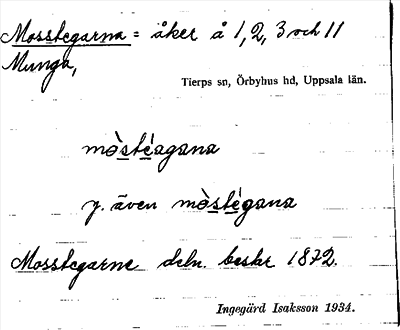 Mosstegarna = åker å 1, 2, 3 och 11
Munga,
Tierps sn, Örbyhus hd, Uppsala län.
mòstéagana
y. även mòstégana
Mosstegarne deln. beskr 1872.
Ingegärd Isaksson 1934.